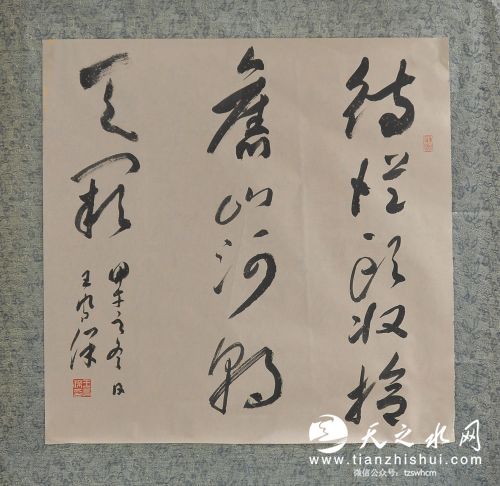 待從頭收拾
舊山河朝
天闕
甲午之冬日
王
天之水网
www.tianzhishui.com
微信公众号: tzswhcm